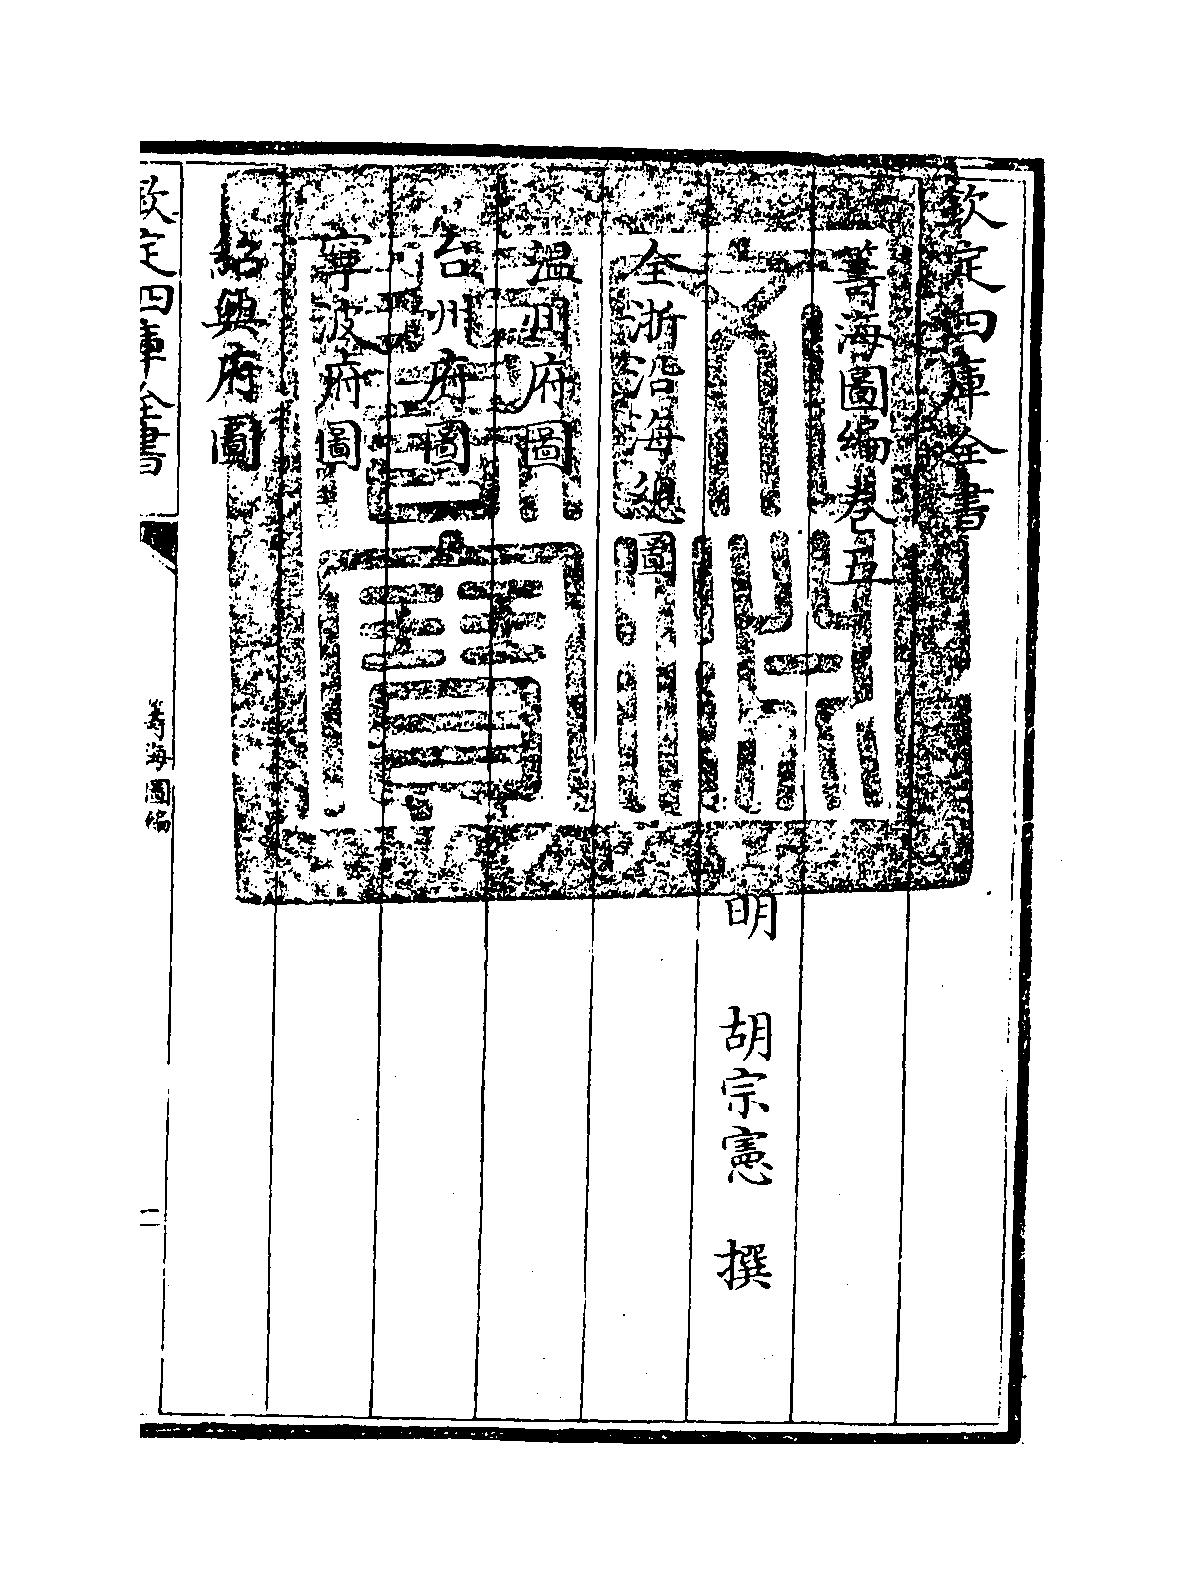 欽定四庫全書
籌海圖編卷五
明 胡宗憲 撰
全浙沿海總圖
温州府圖
台州府圖
寧波府圖
紹興府圖
欽定四庫全書
籌海圖編
一